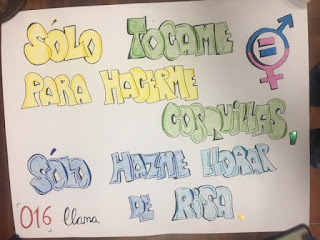 SÓLO TOCAME
PARA HACERME
COSQUILLAS,
SÓLO HAZME LLORAR
DE RISA.
016 llama